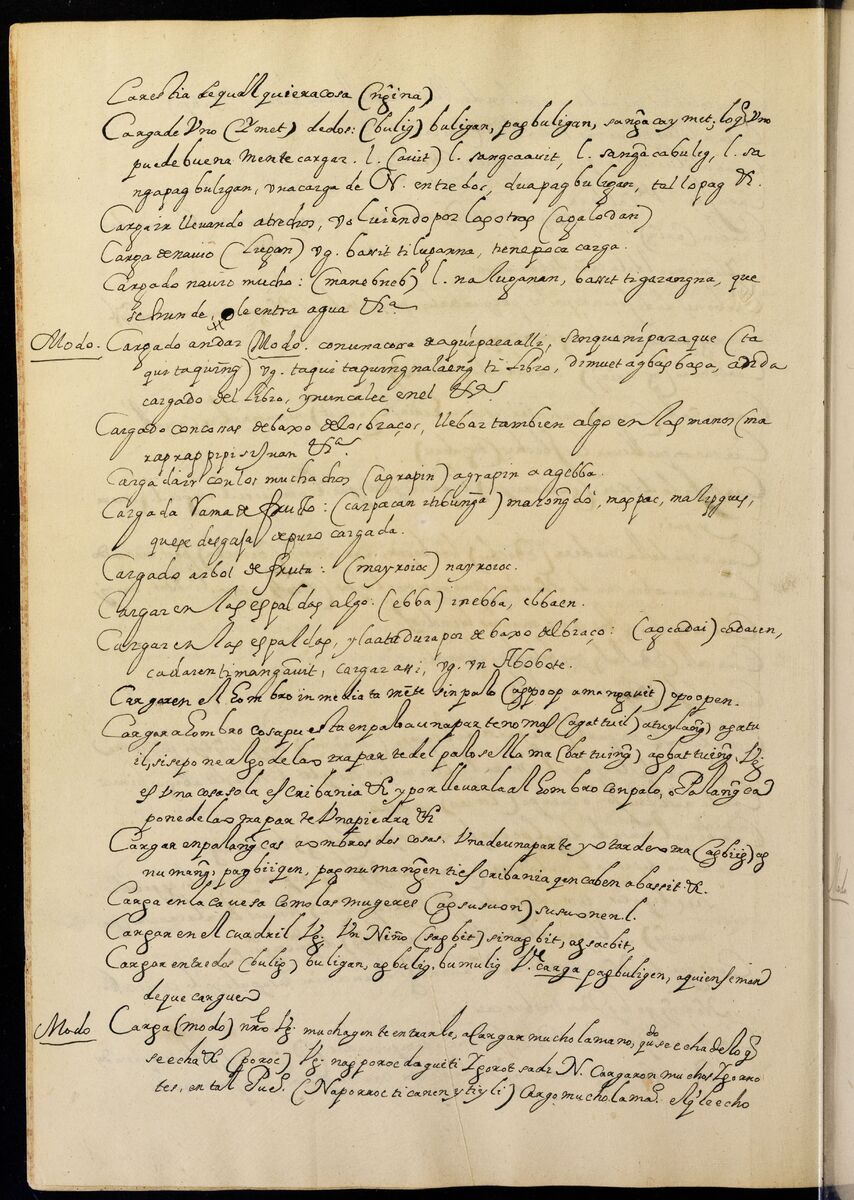 Carestia de qualquiera cosa (ngina)
Carga de Vno (Ymet) de dos: (bulig) buligan, pagbuligan, sangacay met; loq̃ Vno
puede buena mente cargar. l. (auit) l. sangcaauit, l. sangacabulig, l. sa
ngapagbuligan, vna carga de N. entre dos, dua pagbuligan, tallo pag &.
Cargar llevando a trechos, por los otros (agalodan)
Carga de nauio (lugan) vg. bassit ti luganna, tiene poca carga.
Cargado nauio mucho: (manebneb) l. nalugánan, bassit ti garangna, que
se hunde, le entra agua &.ª
Modo. Cargado andar (Modo. con una cosa de aqui para alli, sin que ni para que (ta
quitaquing) vg. taquitaquingna laeng ti libro, di muet agbasbasa, anda
cargado del libro, y nunca lee en el &.ª
Cargado con cosas debaxo de los braços, llebar tambien algo en las manos (ma
raprappipi si Juan &.ª
Carga dair con los muchachos (agrapin) agrapin a agebba.
Cargada Rama de fruto: (carpacan iti bunga) marongdo, maspac, malipgues,
que se desgaja de puro cargada.
Cargado arbol de fruta: (mayroioc) nayroioc.
Cargar en las espaldas algo: (ebba) inebba, ebbaen.
Cargar en las espaldas, y la atadura por debaxo del braço: (agcadai) cadaien,
cadaien ti mangauit, cargar assi, vg. vn Abobote.
Cargar en el hombro inmediatamẽte sin palo (agopoop a mangauit) opoopen.
Cargar a hombro cosa puesta en palo a una parte no mas (agattuil) atuylang, agatu
il, si se pone algo de la otra parte del palo se llama (battuing) agbattuing, Vg.
es Vna cosa sola escribania & y por llevarla al hombro con palo, o Palangca
pone de la otra parte Vna piedra &
Cargar en palangcas a ombros dos cosas, Vna de una parte y otra de otra (agbiig) ag
numang, pagbiigen, pagnumangen ti escribania quen caben a bassit &.
Carga en la cavesa como las mugeres (agsusuon) susuonen l.
Cargar en el cuadril Vg. Vn Niño (sagbit) sinagbit, agsacbit,
Cargar entre dos (bulig) buligan, agbulig, bumulig V.e carga pagbuligen, a quien se man
da que cargue
Modo Carga (modo) nr̃o Vg. mucha gente entrarle, a Cargar mucho la mano, qdo se echa de lo q̃
se echa & (poroc) Vg. nagporoc dagiti Igorot sadi N. Cargaron muchos Igorro
tes, en tal Pue.º (Naporroc ti canen y tiyli) Cargo mucho la ma.º el q̃ le echo